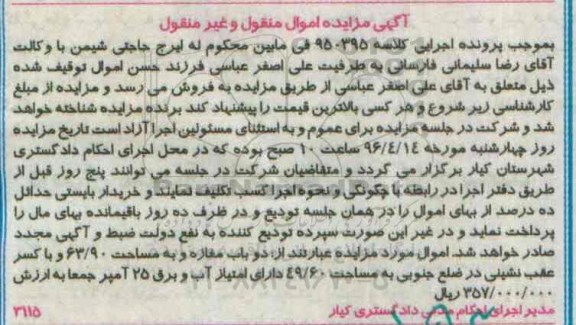 آگهی مزایده اموال منقول و غیر منقول
بموجب پرونده اجرایی کلاسه ۹۵۰۳۹۵ فی مابین محکوم له ایرج حاجتی شیمن با وکالت
آقای رضا سلیمانی فارسانی به طرفیت علی اصغر عباسی فرزند حسن اموال توقیف شده
ذیل متعلق به آقای علی اصغر عباسی از طریق مزایده به فروش می رسد و مزایده از مبلغ
کارشناسی زیر شروع و هر کسی بالاترین قیمت را پیشنهاد کند برنده مزایده شناخته خواهد
شد و شرکت در جلسه مزایده برای عموم و به استثنای مسئولین اجرا آزاد است تاریخ مزایده
روز چهارشنبه مورخه ۹۶/۴/۱۴ ساعت ۱۰ صبح بوده که در محل اجرای احکام دادگستری
شهرستان کیار برگزار می گردد و متقاضیان شرکت در جلسه می توانند پنج روز قبل از
طریق دفتر اجرا در رابطه با چگونگی و نحوه اجرا کسب تکلیف نمایند و خریدار بایستی حداقل
ده درصد از بهای اموال را در همان جلسه تودیع و در ظرف ده روز باقیمانده بهای مال را
پرداخت نماید و در غیر این صورت سپرده تودیع کننده به نفع دولت ضبط و آگهی مجدد
صادر خواهد شد. اموال مورد مزایده عبارتند از: دو باب مغازه و به مساحت ۶۳/۹۰ و با کسر
عقب نشینی در ضلع جنوبی به مساحت ۴۹/۶۰ دارای امتیاز آب و برق ۲۵ آمپر جمعا به ارزش
۳۵۷/۰۰۰/۰۰۰ ریال
مدیر اجرای احکام مدنی دادگستری کیار
۳۱۱۵